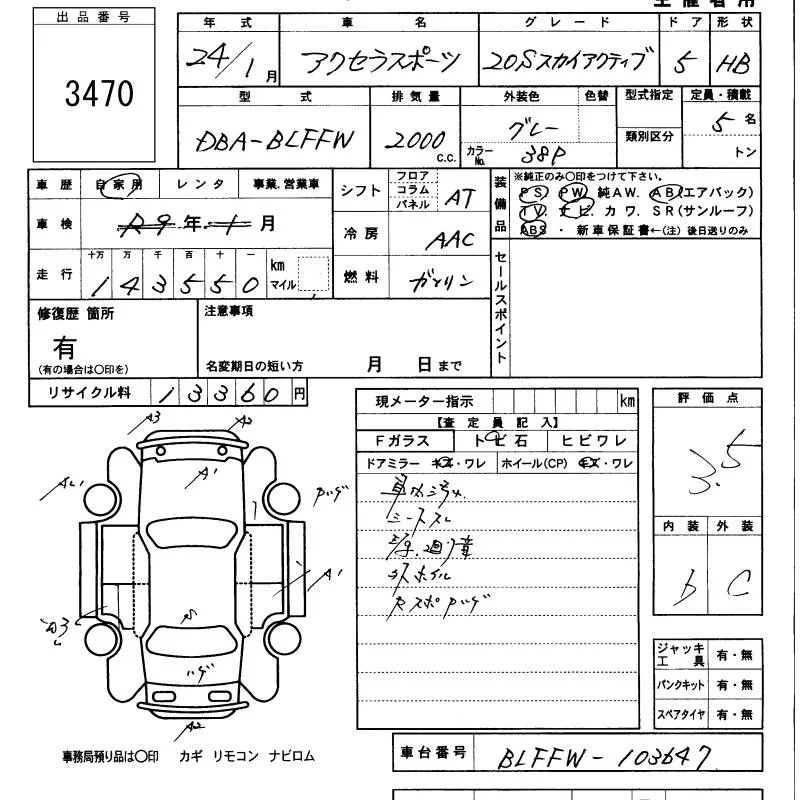 主催者用
出品番号
3470
年式 車名 グレード ドア 形状
24/1月 アクセラスポーツ 20Sスカイアクティブ 5 HB
型式 排気量 外装色 色替 型式指定 定員・積載
DBA-BLFFW 2000 C.C. グレー 類別区分 5名
カラーNo. 38P トン
車歴 自家用 レンタ 事業.営業車
車検 R9年 1月
走行 十万 万 千 百 十 一 km マイル
143550
シフト フロア コラム パネル AT
冷房 AAC
燃料 ガソリン
装備品
※純正のみ〇印をつけて下さい。
PS PW 純AW. AB(エアバック)
TV. ナビ. カワ. SR(サンルーフ)
ABS ・ 新車保証書←(注) 後日送りのみ
セールスポイント
修復歴 箇所
有
(有の場合は〇印を)
注意事項
名変期日の短い方 月 日まで
リサイクル料 13360円
現メーター指示 km
【査定員記入】
Fガラス トビ石 ヒビワレ
ドアミラー キズ・ワレ ホイール(CP) キズ・ワレ
車内汚れ
シートスレ
キズ
評価点
3.5
内装 外装
b C
A3 A2
A1
A1
A1
S
A2
ジャッキ工具 有・無
パンクキット 有・無
スペアタイヤ 有・無
事務局預り品は〇印 カギ リモコン ナビロム
車台番号 BLFFW-103647